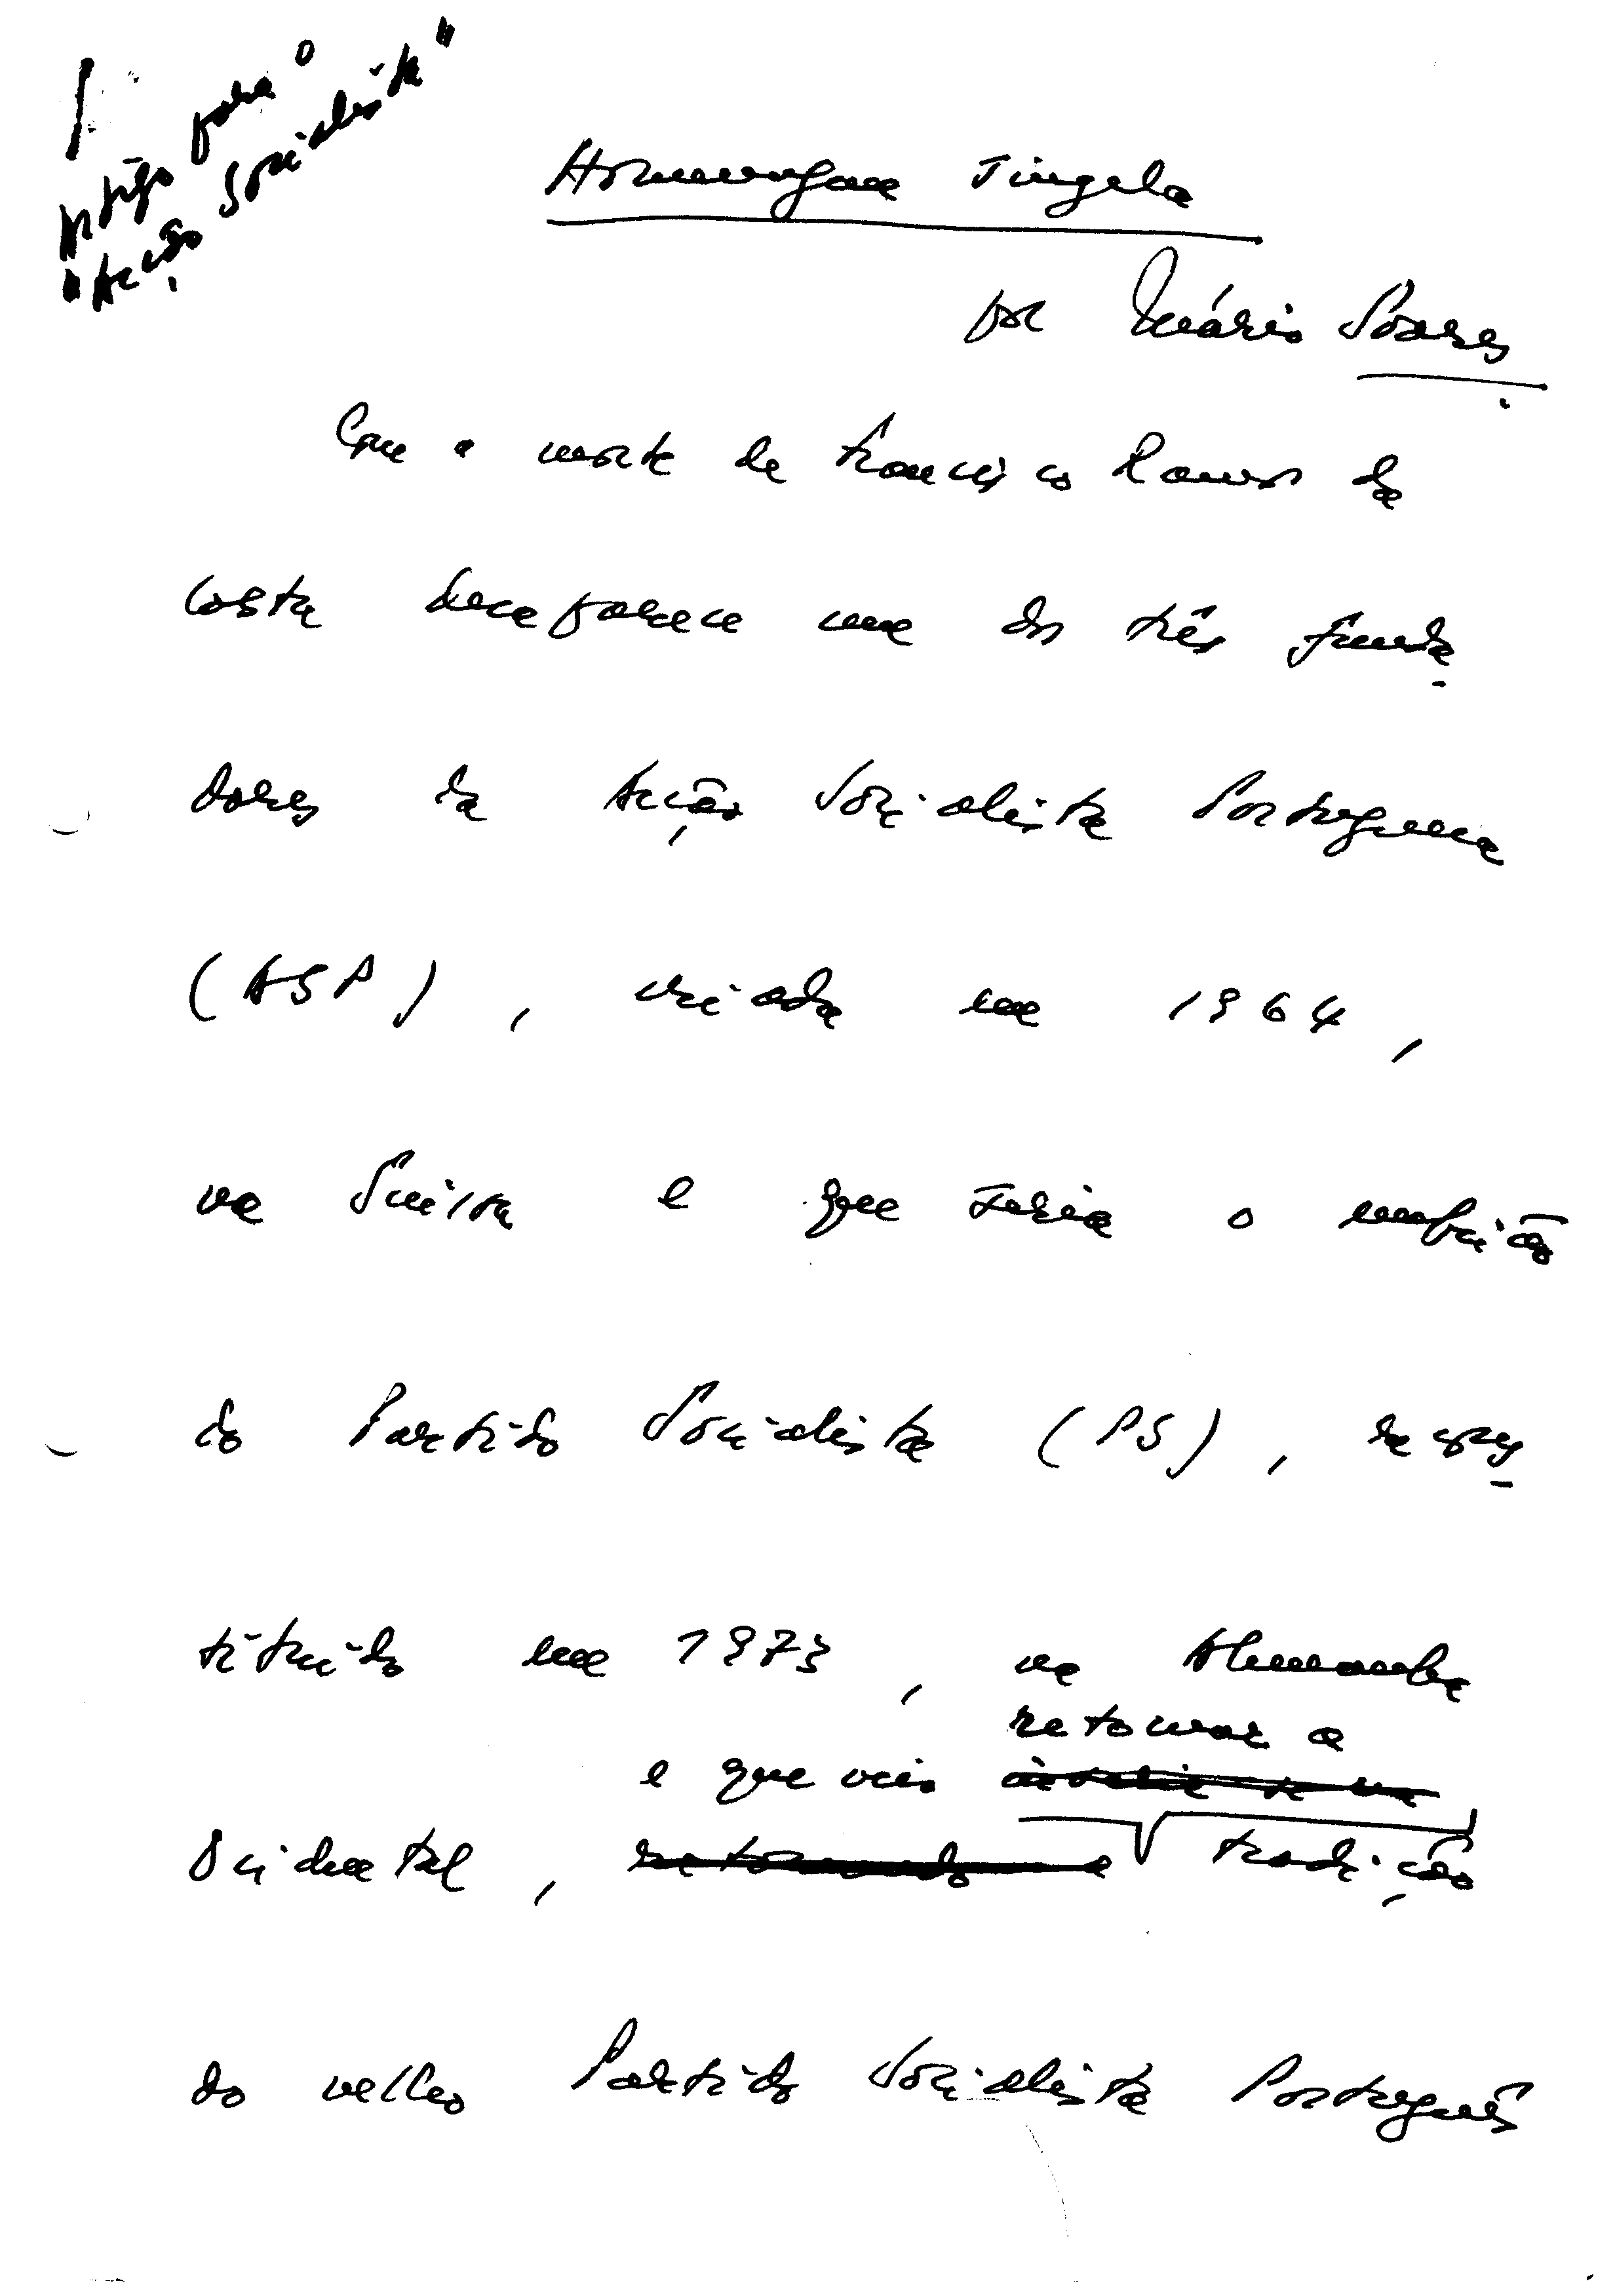 1.
Artigo para o
"Acção Socialista"
Homenagem Singela
por Mário Soares
Com a morte de Francisco Ramos da
Costa desaparece um dos três funda-
dores da Acção Socialista Portuguesa
(ASP), criada em 1964,
na Suíça e que seria o embrião
do Partido Socialista (PS), recons-
tituído em 1973, na Alemanha
retomar a
e que veio
Ocidental, retomando a tradição
do velho Partido Socialista Português